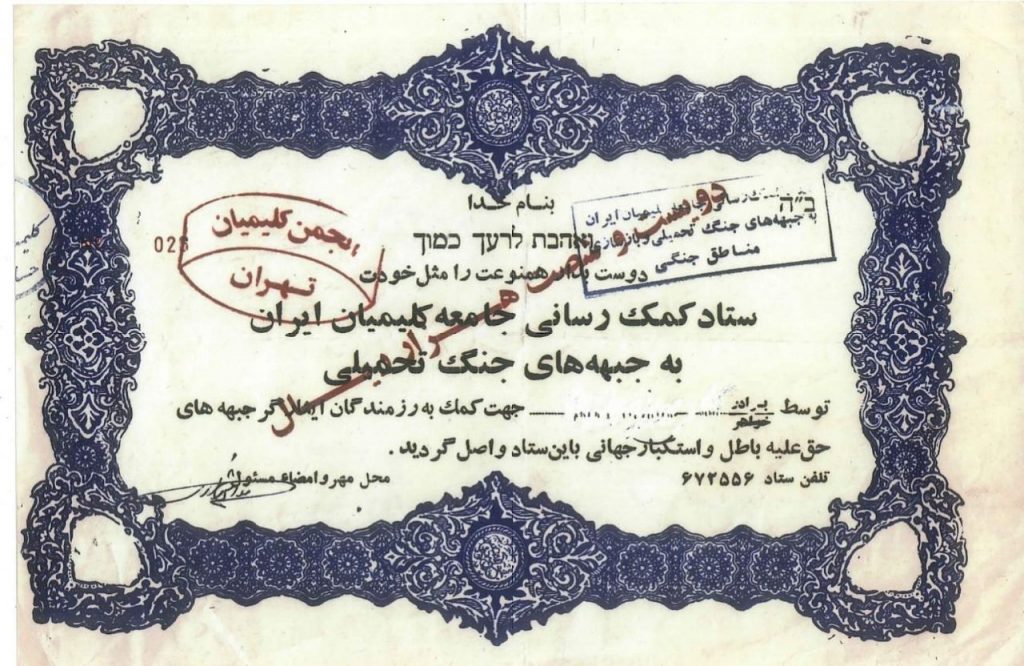 ב״ה
بنام خدا
ואהבת לרעך כמוך
دوست بدار همنوعت را مثل خودت
ستاد کمک رسانی جامعه کلیمیان ایران
به جبهه‌های جنگ تحمیلی
توسط برادر
خواهر
جهت کمک به رزمندگان ایثارگر جبهه های
حق علیه باطل و استکبار جهانی باین ستاد واصل گردید .
تلفن ستاد ۶۷۲۵۵۶
محل مهر و امضاء مسئول
انجمن کلیمیان
تهران
028
کلیمیان ایران
به جبهه‌های جنگ تحمیلی و بازسازی
مناطق جنگی
دویست و شصت هزار ریال